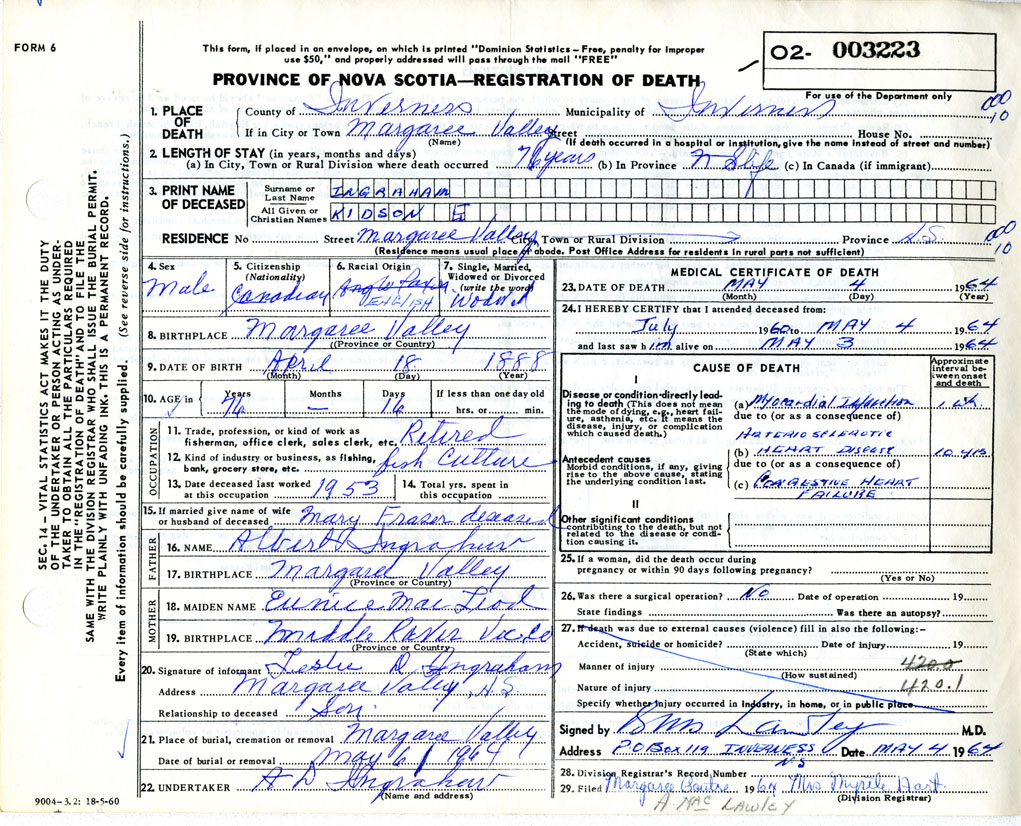 FORM 6
This form, if placed in an envelope, on which is printed "Dominion Statistics – Free, penalty for improper
use $50," and properly addressed will pass through the mail "FREE"
O2- 003223
PROVINCE OF NOVA SCOTIA—REGISTRATION OF DEATH
For use of the Department only
1. PLACE OF DEATH
County of Inverness Municipality of Inverness
000 10
If in City or Town Margaree Valley Street House No.
(Name) (If death occurred in a hospital or institution, give the name instead of street and number)
2. LENGTH OF STAY (in years, months and days)
(a) In City, Town or Rural Division where death occurred 76 years (b) In Province N S life (c) In Canada (if immigrant)
3. PRINT NAME OF DECEASED
Surname or Last Name INGRAHAM
All Given or Christian Names KIDSON E
RESIDENCE No Street Margaree Valley City, Town or Rural Division Province N.S.
000 10
(Residence means usual place of abode. Post Office Address for residents in rural parts not sufficient)
4. Sex Male
5. Citizenship (Nationality) Canadian
6. Racial Origin ENGLISH
7. Single, Married, Widowed or Divorced (write the word)
8. BIRTHPLACE Margaree Valley
(Province or Country)
9. DATE OF BIRTH April 18 1888
(Month) (Day) (Year)
10. AGE in Years 76 Months – Days 16 If less than one day old hrs. or min.
OCCUPATION
11. Trade, profession, or kind of work as fisherman, office clerk, sales clerk, etc. Retired
12. Kind of industry or business, as fishing, bank, grocery store, etc. fish Culture
13. Date deceased last worked at this occupation 1953
14. Total yrs. spent in this occupation
15. If married give name of wife or husband of deceased Mary Fraser deceased
FATHER
16. NAME Albert Ingraham
17. BIRTHPLACE Margaree Valley
(Province or Country)
MOTHER
18. MAIDEN NAME Eunice Mac Leod
19. BIRTHPLACE Middle River Vic. Co
(Province or Country)
20. Signature of informant Leslie D. Ingraham
Address Margaree Valley, N.S.
Relationship to deceased Son
21. Place of burial, cremation or removal Margaree Valley
Date of burial or removal May 6 / 1964
22. UNDERTAKER A D Ingraham
(Name and address)
MEDICAL CERTIFICATE OF DEATH
23. DATE OF DEATH MAY 4 1964
(Month) (Day) (Year)
24. I HEREBY CERTIFY that I attended deceased from:
July 1960 to MAY 4 1964
and last saw him alive on MAY 3 1964
CAUSE OF DEATH
Approximate interval between onset and death
I
Disease or condition directly leading to death (This does not mean the mode of dying, e.g., heart failure, asthenia, etc. It means the disease, injury, or complication which caused death.)
(a) Myocardial Infarction
due to (or as a consequence of)
ARTERIOSCLEROTIC
Antecedent causes
Morbid conditions, if any, giving rise to the above cause, stating the underlying condition last.
(b) HEART DISEASE
due to (or as a consequence of)
(c) CONGESTIVE HEART
FAILURE
II
Other significant conditions contributing to the death, but not related to the disease or condition causing it.
25. If a woman, did the death occur during
pregnancy or within 90 days following pregnancy?
(Yes or No)
26. Was there a surgical operation? No Date of operation 19
State findings Was there an autopsy?
27. If death was due to external causes (violence) fill in also the following:–
Accident, suicide or homicide? Date of injury 19
(State which)
Manner of injury 420.0
(How sustained)
Nature of injury 420.1
Specify whether injury occurred in industry, in home, or in public place
Signed by Lawley M.D.
Address P.O Box 119 INVERNESS NS Date MAY 4 1964
28. Division Registrar's Record Number
29. Filed Margaree Centre 1964 Mrs Myrtle Hart
(Division Registrar)
A. MAC LAWLEY
SEC. 14 – VITAL STATISTICS ACT MAKES IT THE DUTY
OF THE UNDERTAKER OR PERSON ACTING AS UNDER-
TAKER TO OBTAIN ALL THE PARTICULARS REQUIRED
IN THE "REGISTRATION OF DEATH" AND TO FILE THE
SAME WITH THE DIVISION REGISTRAR WHO SHALL ISSUE THE BURIAL PERMIT.
WRITE PLAINLY WITH UNFADING INK. THIS IS A PERMANENT RECORD.
Every item of information should be carefully supplied. (See reverse side for instructions.)
9004-3.2: 18-5-60